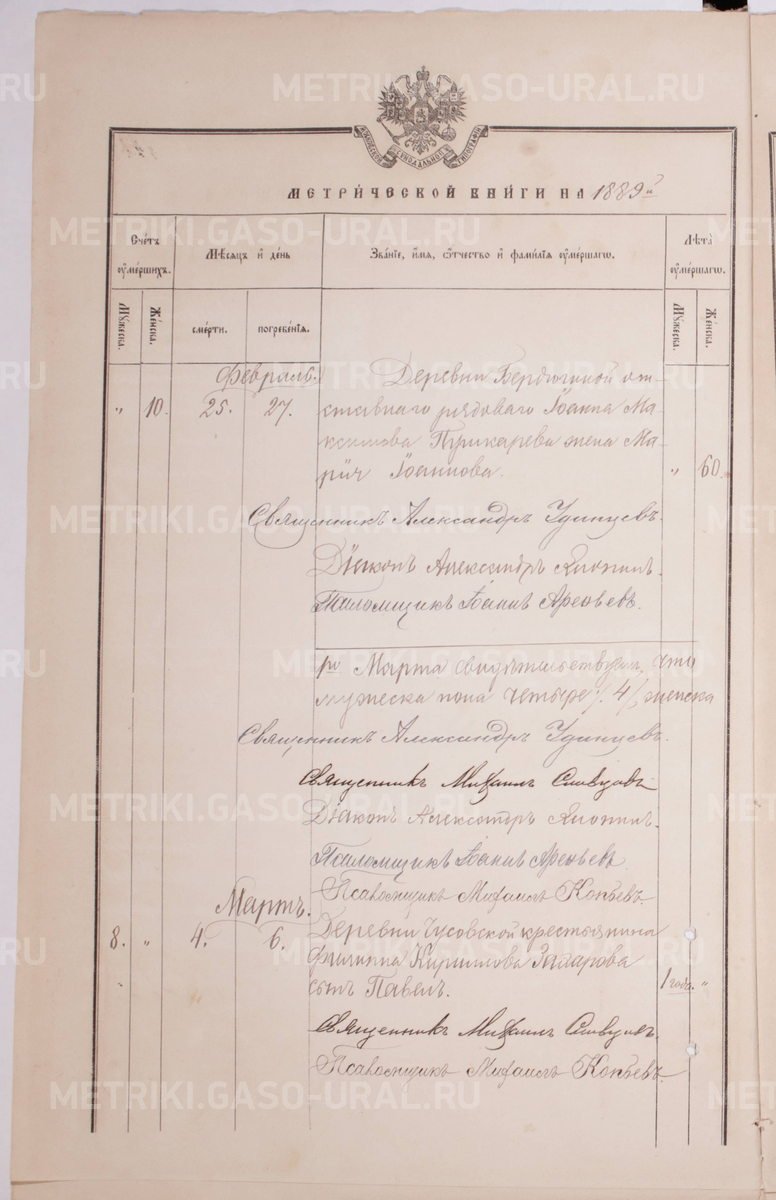 МЕТРИ́ЧЕСКОЙ КНИ́ГИ НА 1889й
Сче́тъ ᲂу҆ме́ршихъ.
Мѣ́сяцъ и҆ де́нь
Зва́нїе, и҆́мя, ѻ҆́тчество и҆ фами́лїя ᲂу҆ме́ршагѡ.
Лѣ́та ᲂу҆ме́ршагѡ.
Мꙋ́жеска.
Же́нска.
сме́рти.
погребе́нїя.
Мꙋ́жеска.
Же́нска.
Февраль.
Деревни Бердюгиной от-
„ 10. 25. 27. ставнаго рядоваго Іоанна Ма-
ксимова жена Ма-
рія Іоаннова. „ 60.
Священникъ Александръ Удинцевъ.
Діаконъ Александръ
Псаломщикъ Іоаннъ Арефьевъ.
По Марта свидѣтельствуемъ, что
мужеска пола четыре /4/, женска
Священникъ Александръ Удинцевъ.
Священникъ Михаилъ Словцовъ
Діаконъ Александръ
Псаломщикъ Іоаннъ Арефьевъ.
Псаломщикъ Михаилъ Копьевъ.
Мартъ.
Деревни Чусовской крестьянина
8. „ 4. 6. Филиппа Кириллова
сынъ Павелъ. 1 года. „
Священникъ Михаилъ Словцовъ.
Псаломщикъ Михаилъ Копьевъ.
METRIKI.GASO-URAL.RU